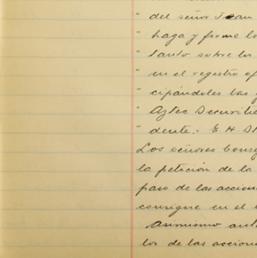 " del señor Juan
" haga y firme lo
" tanto sobre la
" en el registro of
" cipándoles las
" Aztec Securitie
" dente.- E. H.
Los señores Conse
la petición de la
paso de las accione
consigne en el
Asimismo
los de las accione